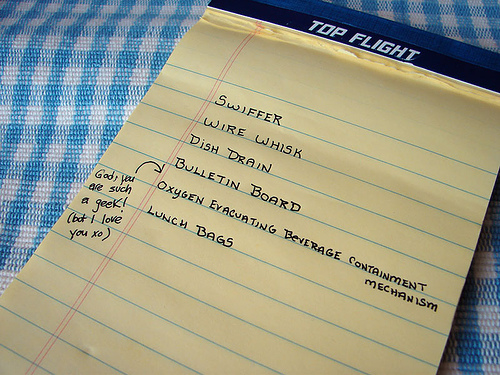 TOP FLIGHT
SWIFFER
WIRE WHISK
DISH DRAIN
BULLETIN BOARD
OXYGEN EVACUATING BEVERAGE CONTAINMENT
MECHANISM
LUNCH BAGS
God, you
are such
a geek!
(but I love
you xo)